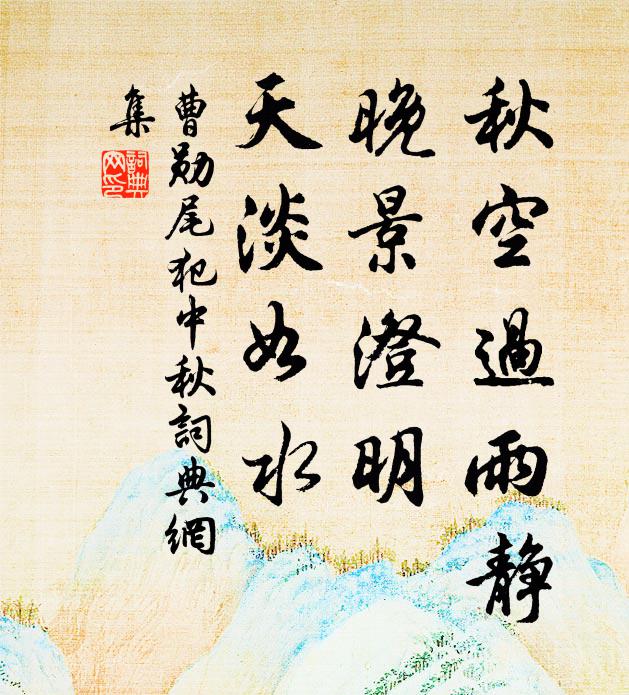 秋空過雨静
晚景澄明
天淡如水
曹勛尾犯中秋詞典網
集
詞典
网印